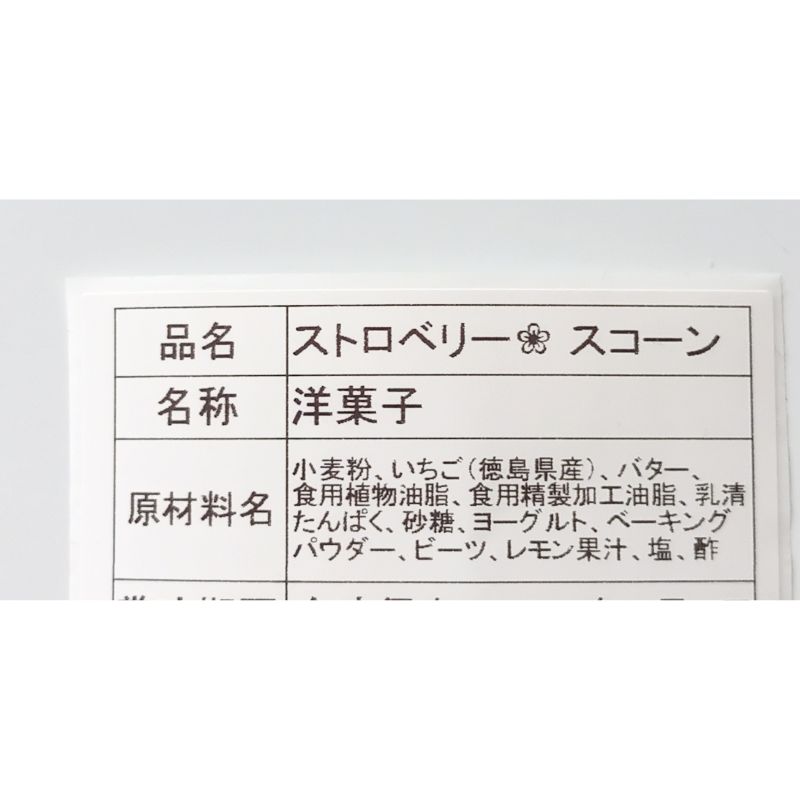 品名 ストロベリー❀ スコーン
名称 洋菓子
原材料名
小麦粉、いちご（徳島県産）、バター、
食用植物油脂、食用精製加工油脂、乳清
たんぱく、砂糖、ヨーグルト、ベーキング
パウダー、ビーツ、レモン果汁、塩、酢